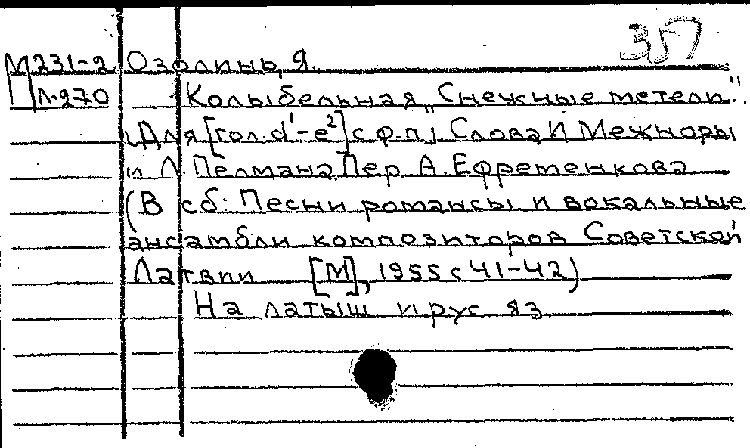 357
М231-2 Озолинь, Я.
Л-270 Колыбельная „Снежные метели".
Для [гол. d¹-e²] с ф-п, Слова И Межноры
и Л. Пелмана Пер А. Ефременкова
(В сб: Песни романсы и вокальные
ансамбли композиторов Советской
Латвии [М], 1955 с 41-42)
На латыш и рус яз